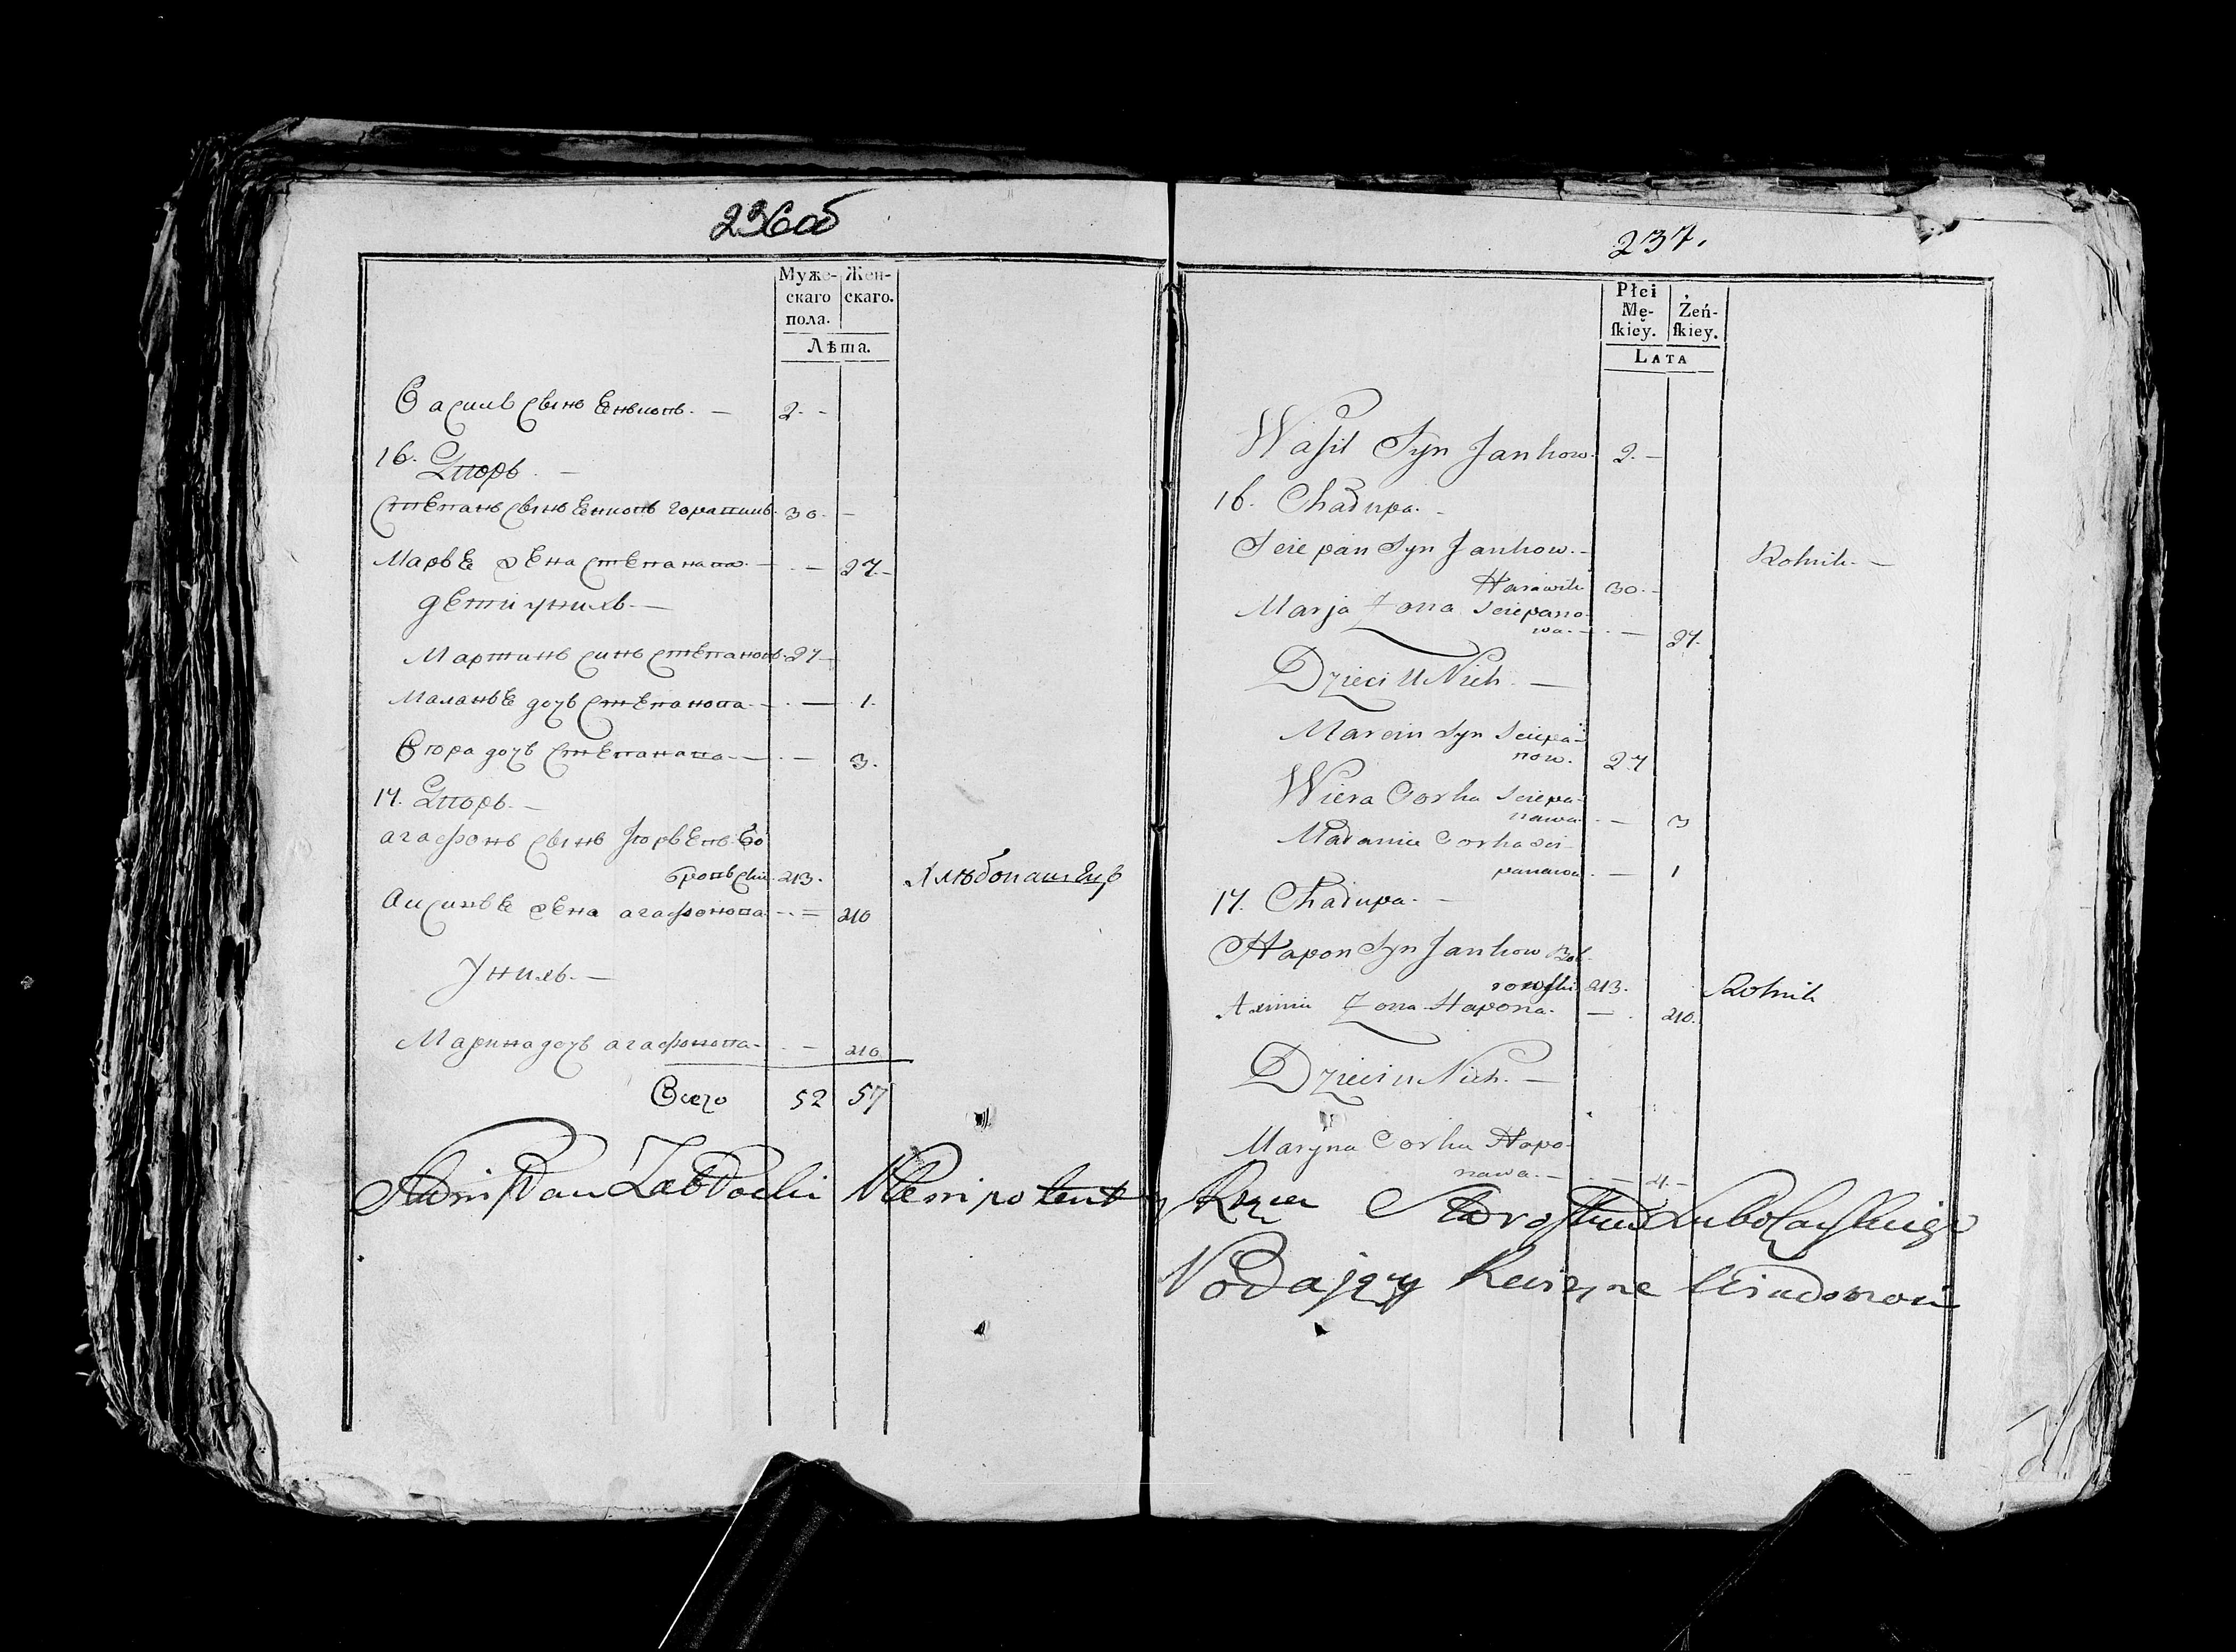 236об
Муже-
скаго
пола.
Жен-
скаго.
Лѣта.
Василь сынъ Енковъ. — 2. -
16. Дворъ. —
Степанъ сынъ Енковъ 30. -
Марья жена Степанава. - - — 27. -
дети у нихъ. —
Мартинъ синъ Степановъ. 27 -
Маланья дочъ Степанова - - — 1.
Вюра дочъ Степанава. — - — 3.
17. Дворъ. —
агафонъ сынъ Юрьевъ Бо
бровски. 43. Хлѣбопашецъ
Аксинья жена агафонова - - = 40
У нихъ. —
Марина дочъ агафонова - - — 
Всего 52 57
Plenipotent
237.
Płci
Mę-
ſkiey.
Żeń-
ſkiey.
LATA
Waſil Syn Jankow. 2. —
16. Chałupa. -
Sciepan Syn Jankow. - Rolnik. —
30. -
Marja Zona Sciepano-
wa. - - — 27.
Dzieci u Nich. —
Marcin Syn Sciepa-
now. 27
Wiera Corka Sciepa-
nawa. - — 3
Małania Corka Sci-
panawa. — 1
17. Chałupa. -
Hapon Syn Jankow Bob-
rowſki 43. Rolnik
Axinia Zona Hapona. — . 40.
Dzieci u Nich. —
Maryna Corka Hapo-
nawa. — - — 4. -
Podający Rewizyie